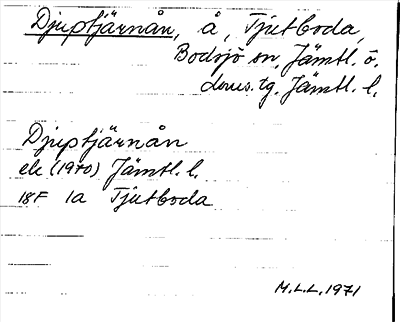 Djuptjärnån, å, Tjutboda,
Bodsjö sn, Jämtl. ö.
doms.tg. Jämtl. l.
Djuptjärnån
ek (1970) Jämtl. l.
18F 1a Tjutboda
M.L.L. 1971